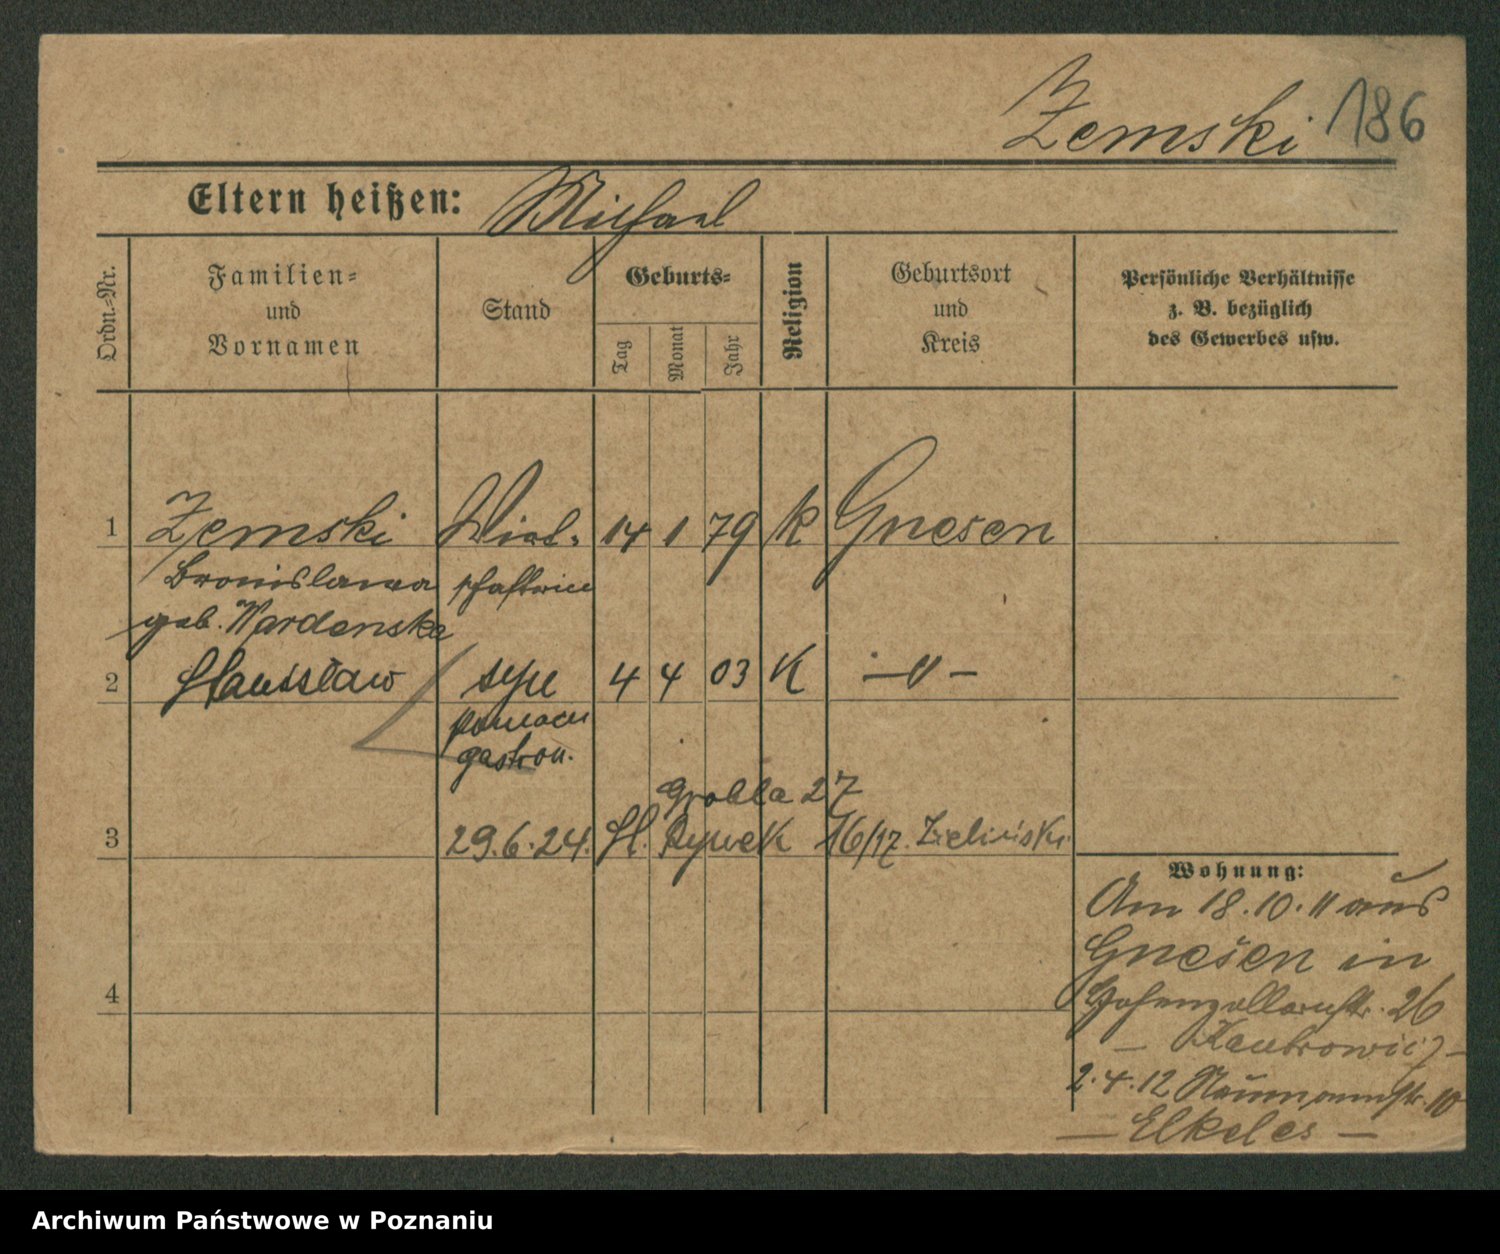 Zemski 186
Eltern heißen: Michael
Ordn.-Nr.
Familien-
und
Vornamen
Stand
Geburts-
Tag
Monat
Jahr
Religion
Geburtsort
und
Kreis
Persönliche Verhältnisse
z. B. bezüglich
des Gewerbes usw.
1 Zemski Wirt- 14 1 79 K Gnesen
Bronislawa schafterin
geb. Wardenska
2 Stanisław syn 4 4 03 K — " —
pomocn
gastron.
Grobla 27
3 29.6.24. St. Rynek 16/17. Zieliński
Wohnung:
Am 18.10.11 aus
Gnesen in
Hohenzollernstr. 26
— Kantrowicz —
2.4.12 Naumannstr. 10
— Elkeles —
4
Archiwum Państwowe w Poznaniu